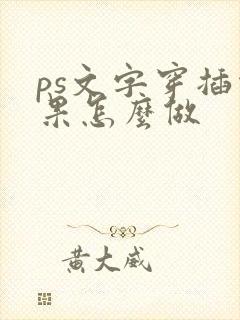 ps文字穿插
果怎麼做
黃大威